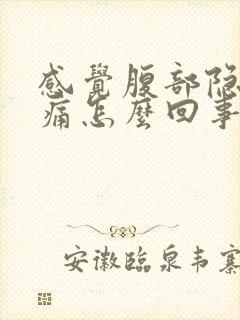 感覺腹部隐
痛怎麼回事
安徽臨泉韦寨